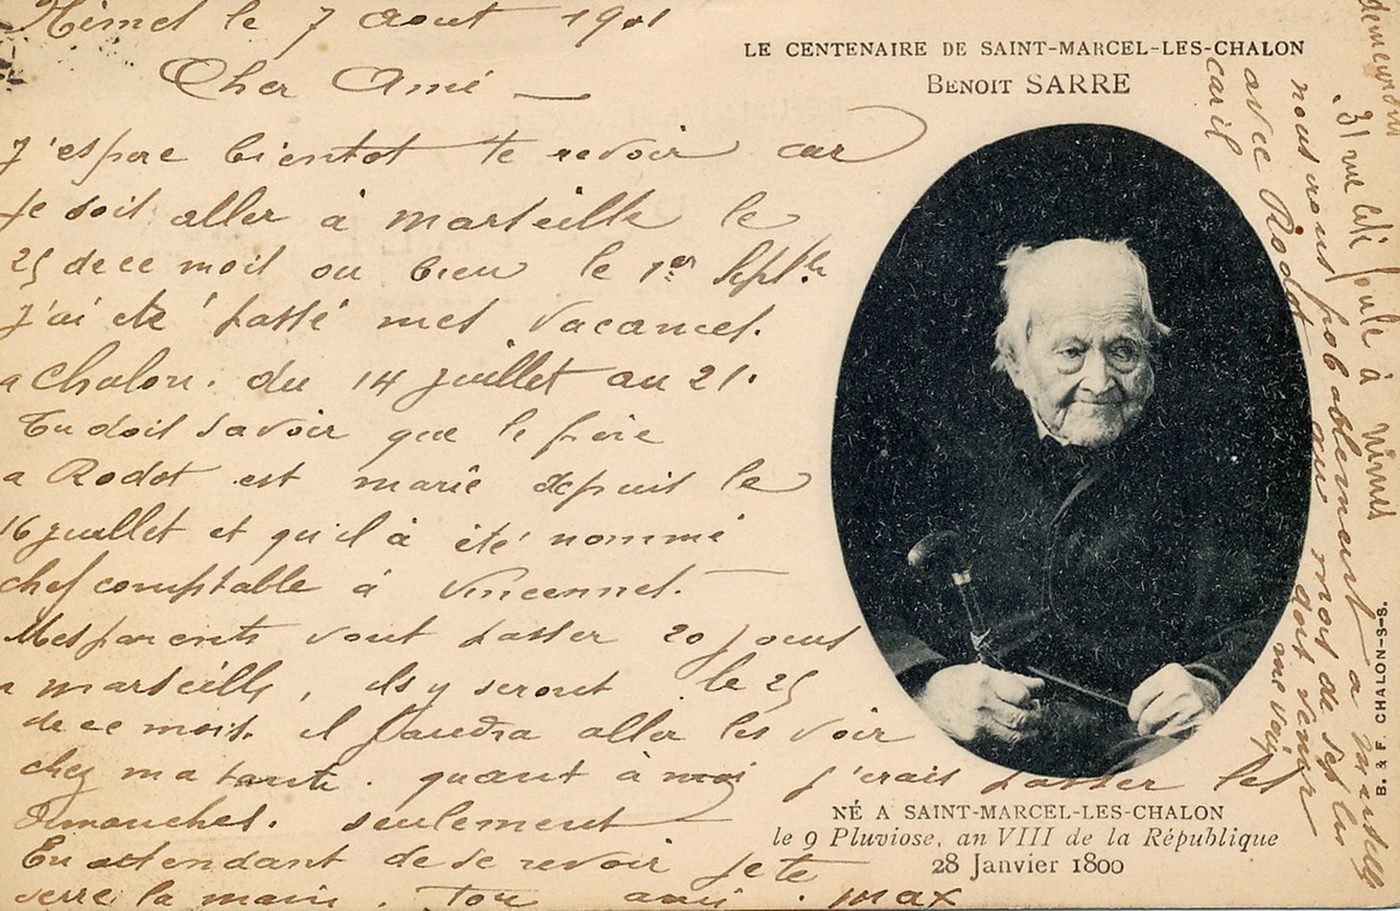 Nimes le 7 Aout 1901
Cher Amé —
J'espere bientot te revoir car
Je doit aller à marseille le
25 de ce mois ou bien le 1er Sept.bre
J'ai eté passé mes vacances.
a Chalon. du 14 juillet au 21.
Tu dois savoir que le frère
a Rodot est marié depuis le
16 juillet et qu'il à été nommé
chef comptable à Vincennes.
Mes parents vont passer 20 jours
a marseille, ils y seront le 25
de ce mois. il faudra aller les voir
chez ma tante. quant à moi j'irais passer les
dimanches. seulement
En attendant de se revoir je te
serre la main. Ton ami. max
LE CENTENAIRE DE SAINT-MARCEL-LES-CHALON
BENOIT SARRE
NÉ A SAINT-MARCEL-LES-CHALON
le 9 Pluviose, an VIII de la République
28 Janvier 1800
B. & F. CHALON-S-S.
31 rue cité foule à nimes
nous irons probablement a marseille
au mois de
avec Rodot qui doit venir me voir
car il